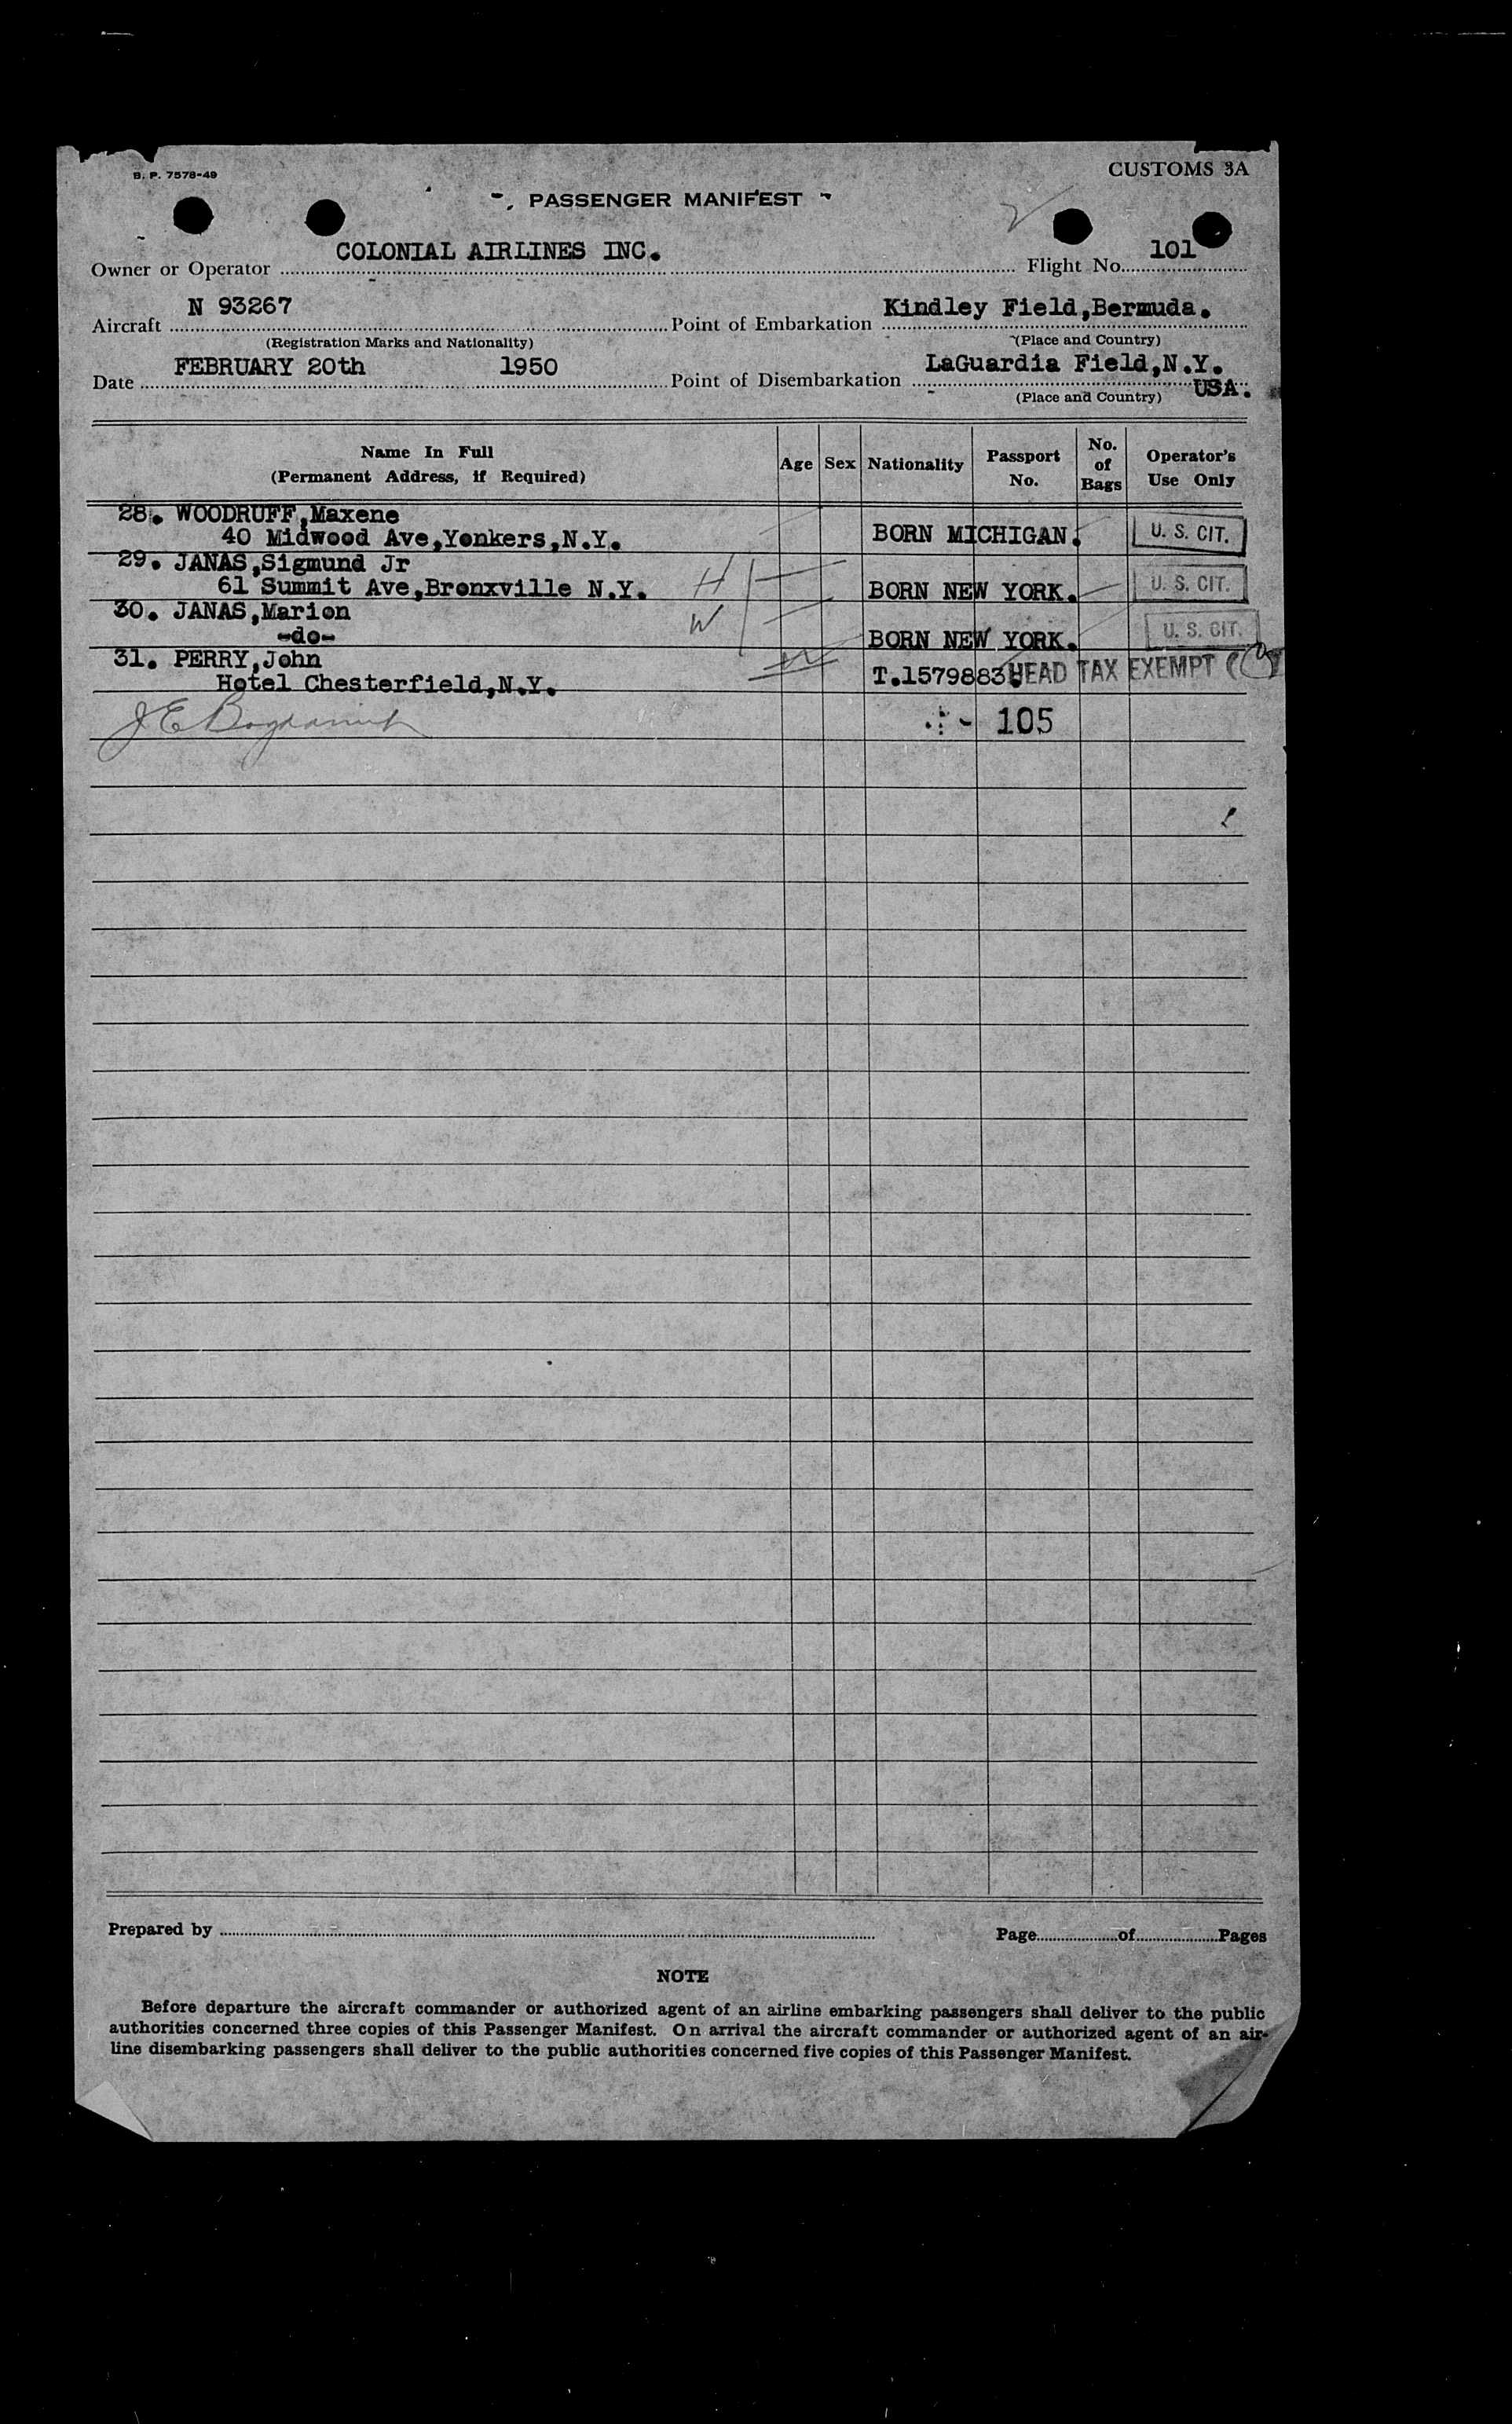 B. P. 7578-49
CUSTOMS 3A
PASSENGER MANIFEST
Owner or Operator COLONIAL AIRLINES INC. Flight No. 101
Aircraft N 93267 Point of Embarkation Kindley Field,Bermuda.
(Registration Marks and Nationality) (Place and Country)
Date FEBRUARY 20th 1950 Point of Disembarkation LaGuardia Field,N.Y.
USA.
(Place and Country)
Name In Full (Permanent Address, if Required) Age Sex Nationality Passport No. No. of Bags Operator's Use Only
28. WOODRUFF,Maxene
40 Midwood Ave,Yonkers,N.Y. BORN MICHIGAN. U. S. CIT.
29. JANAS,Sigmund Jr
61 Summit Ave,Bronxville N.Y. H BORN NEW YORK. U. S. CIT.
30. JANAS,Marion W
-do- BORN NEW YORK. U. S. CIT.
31. PERRY,John
Hotel Chesterfield,N.Y. T.1579883 HEAD TAX EXEMPT
105
Prepared by Page of Pages
NOTE
Before departure the aircraft commander or authorized agent of an airline embarking passengers shall deliver to the public
authorities concerned three copies of this Passenger Manifest. On arrival the aircraft commander or authorized agent of an air-
line disembarking passengers shall deliver to the public authorities concerned five copies of this Passenger Manifest.